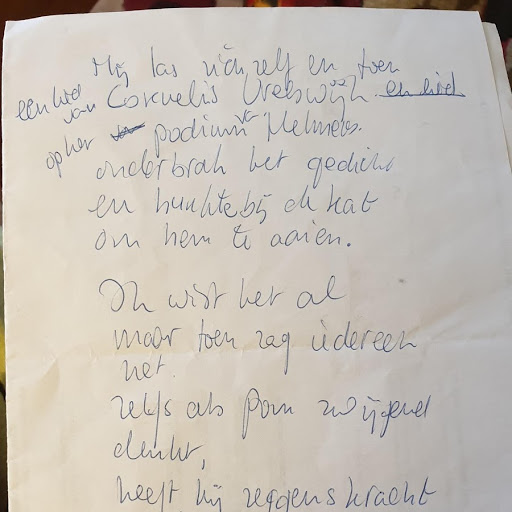 Hij las zichzelf en toen
een lied van Cornelis Vreeswijk en lied
op het podium van Helmers.
onderbrak het gedicht
en hurkte bij de kat
om hem te aaien.
Ik wist het al
maar toen zag iedereen
het.
zelfs als Pom zwijgend
denkt,
heeft hij zeggenskracht